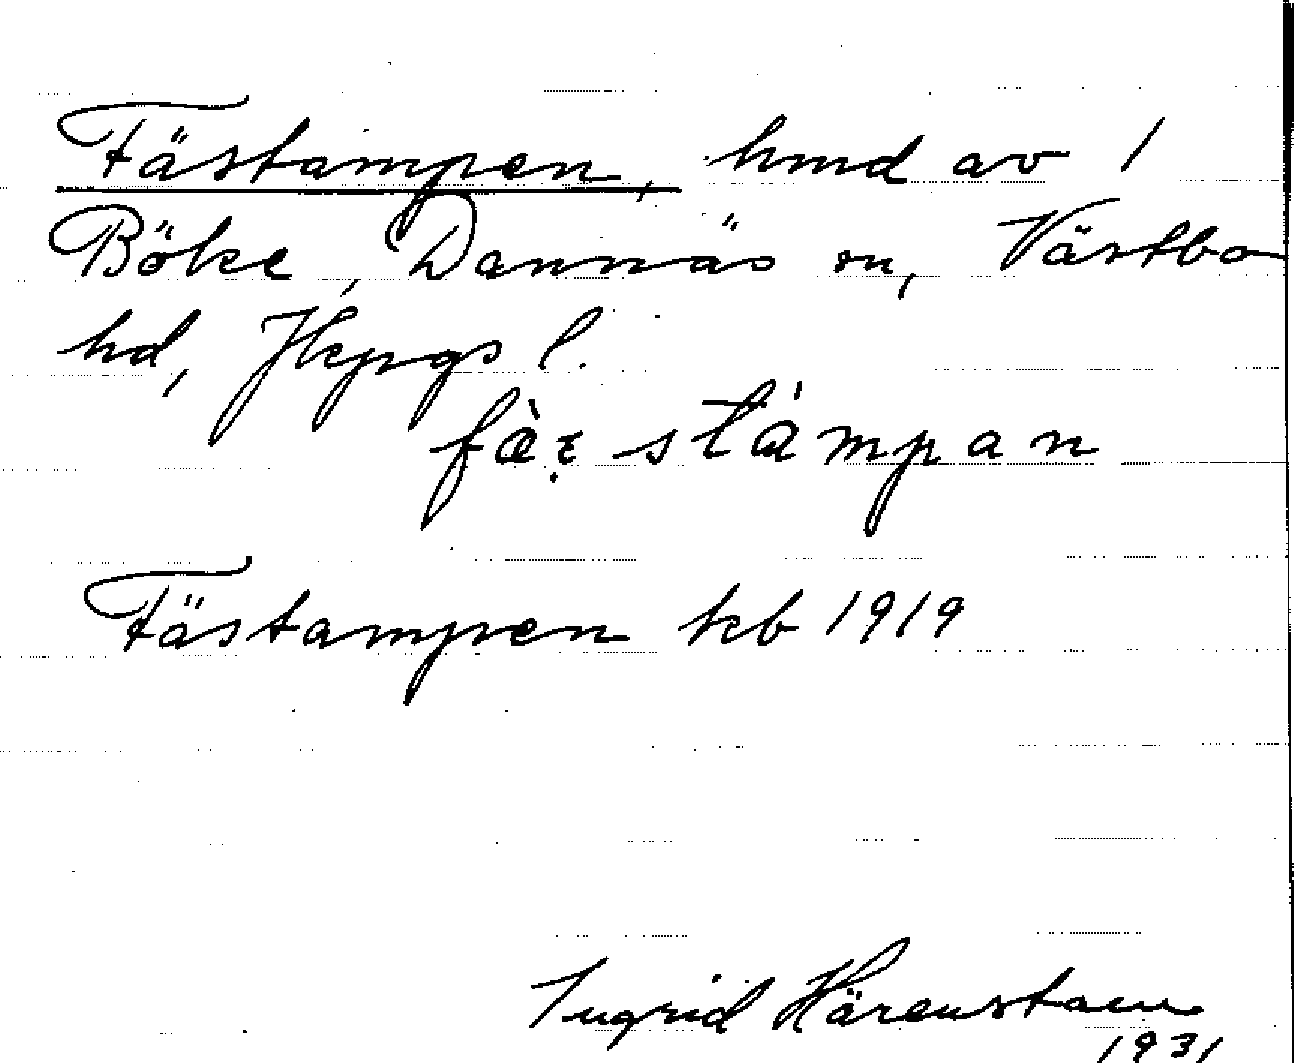 Fästampen, hmd av 1
Böke, Dannäs sn, Västbo
hd, Jkpgs l.
fàε̣ stámpan
Fästampen kb 1919
Ingrid Härenstam
1931